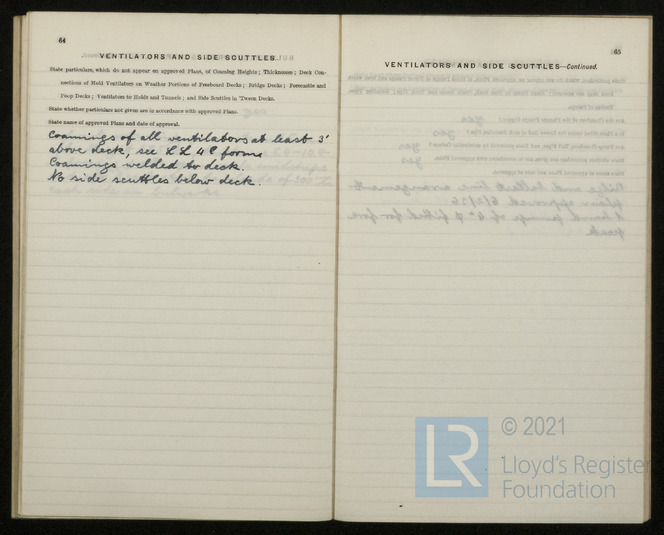 64
VENTILATORS AND SIDE SCUTTLES.
State particulars, which do not appear on approved Plans, of Coaming Heights; Thicknesses; Deck Con-
nections of Hold Ventilators on Weather Portions of Freeboard Decks; Bridge Decks; Forecastle and
Poop Decks; Ventilators to Holds and Tunnels; and Side Scuttles in 'Tween Decks.
State whether particulars not given are in accordance with approved Plans.
State name of approved Plans and date of approval.
Coamings of all ventilators at least 3'
above deck, see LL 4 forms
Coamings welded to deck.
No side scuttles below deck.
65
VENTILATORS AND SIDE SCUTTLES—Continued.
LR
© 2021
Lloyd's Register
Foundation